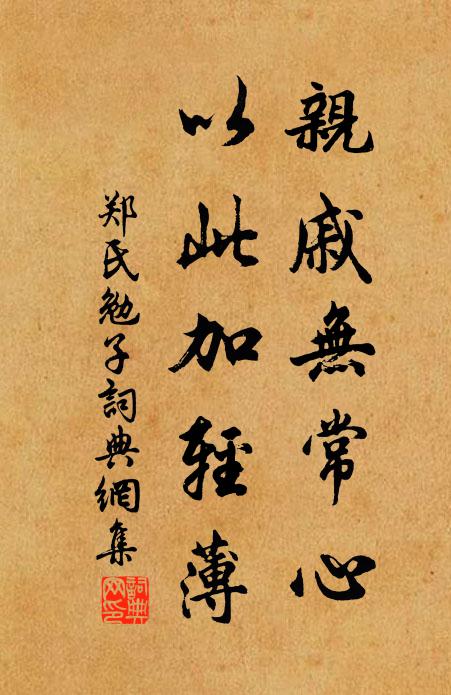 親戚無常心
以此加輕薄
郑氏勉子詞典網集
詞典网印